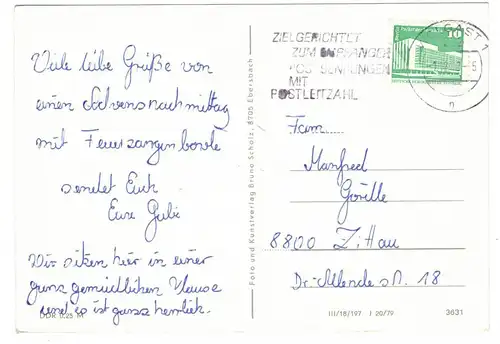 Viele liebe Grüße von
einen Advensnachmittag
mit Feuerzangenbowle
sendet Euch
Eure Gabi
Wir sitzen hier in einer
ganz gemütlichen Klause
und es ist ganz herrlich.
DDR 0,25 M
Foto und Kunstverlag Bruno Scholz, 8705 Ebersbach
ZIELGERICHTET
ZUM EMPFÄNGER
POSTSENDUNGEN
MIT
POSTLEITZAHL
10
Fam.
Manfred
Görille
8800 Zittau
Dr.-Allende st. 18
III/18/197 I 20/79 3631